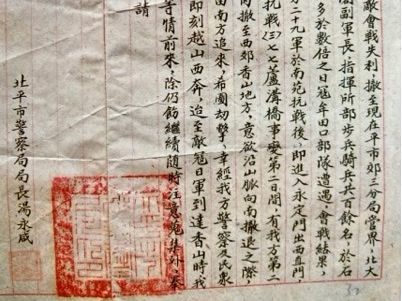 敵會戰失利,撤至現在平市郊三分局管界,北大
副軍長指揮所部步兵騎兵共百餘名,於石
多於數倍之日寇牟田口部隊遭遇,會戰結果,
二十九軍於南苑抗戰後,即進入永定門出西直門,
抗戰(3)七七蘆溝橋事變第二日間,有我方第二
內撤至西郊香山地方,意欲沿山脈向南撤退之際,
由南方追來,希圖刼擊,幸經我方警察及民衆
即刻越山西奔,迨至敵寇日軍到達香山時我
等情前來,除仍飭繼續隨時注意蒐集外,奉
請
北平市警察局局長湯永咸